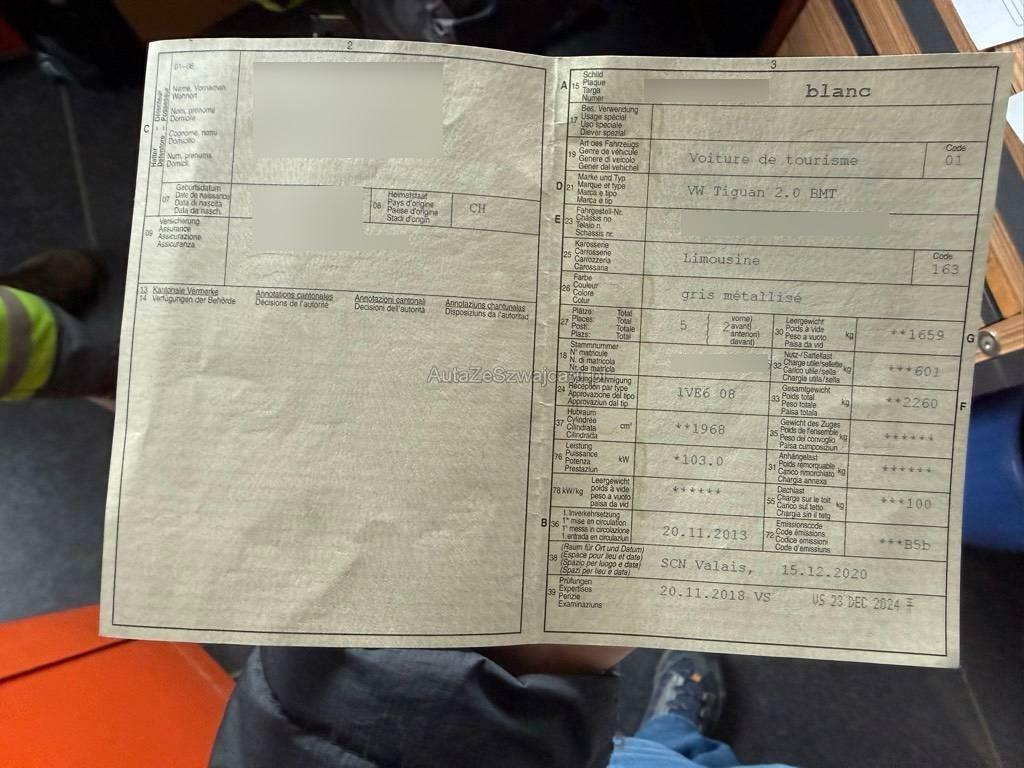 2
01-06
Name, Vornamen
Wohnort
Nom, prénoms
Domicile
Cognome, nomi
Domicilio
Num, prenums
Domicil
C
Halter
Détenteur
07
Geburtsdatum
Date de naissance
Data di nascita
Data da nasch.
08
Heimatstaat
Pays d'origine
Paese d'origine
Stadi d'origin
CH
09
Versicherung
Assurance
Assicurazione
Assicuranza
13
14
Kantonale Vermerke
Verfügungen der Behörde
Annotations cantonales
Décisions de l'autorité
Annotazioni cantonali
Decisioni dell'autorità
Annotaziuns chantunalas
Disposiziuns da l'autoritad
AutaZeSzwajcarii.pl
3
A 15
Schild
Plaque
Targa
Numer
blanc
17
Bes. Verwendung
Usage spécial
Uso speciale
Diever spezial
19
Art des Fahrzeugs
Genre de véhicule
Genere di veicolo
Gener dal vehichel
Voiture de tourisme
Code
01
D 21
Marke und Typ
Marque et type
Marca e tipo
Marca e tip
VW Tiguan 2.0 BMT
E 23
Fahrgestell-Nr.
Châssis no
Telaio n.
Schassis nr.
25
Karosserie
Carrosserie
Carrozzeria
Carossaria
Limousine
Code
163
26
Farbe
Couleur
Colore
Colur
gris métallisé
27
Plätze: Total
Places: Total
Posti: Totale
Plazs: Total
5
2
vorne)
avant)
anteriori)
davant)
30
Leergewicht
Poids à vide
Peso a vuoto
Paisa da vid
kg
**1659
G
18
Stammnummer
N° matricule
N. di matricola
Nr. da matricla
32
Nutz-/Sattellast
Charge utile/sellette
Carico utile/sella
Chargia utila/sella
kg
***601
24
Typengenehmigung
Réception par type
Approvazione del tipo
Approvaziun dal tip
1VE6 08
33
Gesamtgewicht
Poids total
Peso totale
Paisa totala
kg
**2260
F
37
Hubraum
Cylindrée
Cilindrata
Cilindrada
cm³
**1968
35
Gewicht des Zuges
Poids de l'ensemble
Peso del convoglio
Paisa cumposiziun
kg
******
76
Leistung
Puissance
Potenza
Prestaziun
kW
*103.0
31
Anhängelast
Poids remorquable
Carico rimorchiato
Chargia annexa
kg
******
78 kW/kg
Leergewicht
poids à vide
peso a vuoto
paisa da vid
******
55
Dachlast
Charge sur le toit
Carico sul tetto
Chargia sin il tetg
kg
***100
B 36
1. Inverkehrsetzung
1re mise en circulation
1a messa in circolazione
1. entrada en circulaziun
20.11.2013
72
Emissionscode
Code émissions
Codice emissioni
Code d'emissiuns
***B5b
38
(Raum für Ort und Datum)
(Espace pour lieu et date)
(Spazio per luogo e data)
(Spazi per lieu e data)
SCN Valais, 15.12.2020
39
Prüfungen
Expertises
Perizie
Examinaziuns
20.11.2018 VS
VS 23 DEC 2024